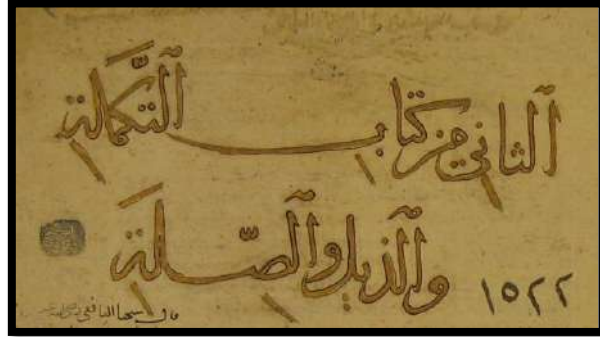 الثاني من كتاب التكملة
والذيل والصلة
١٥٢٢